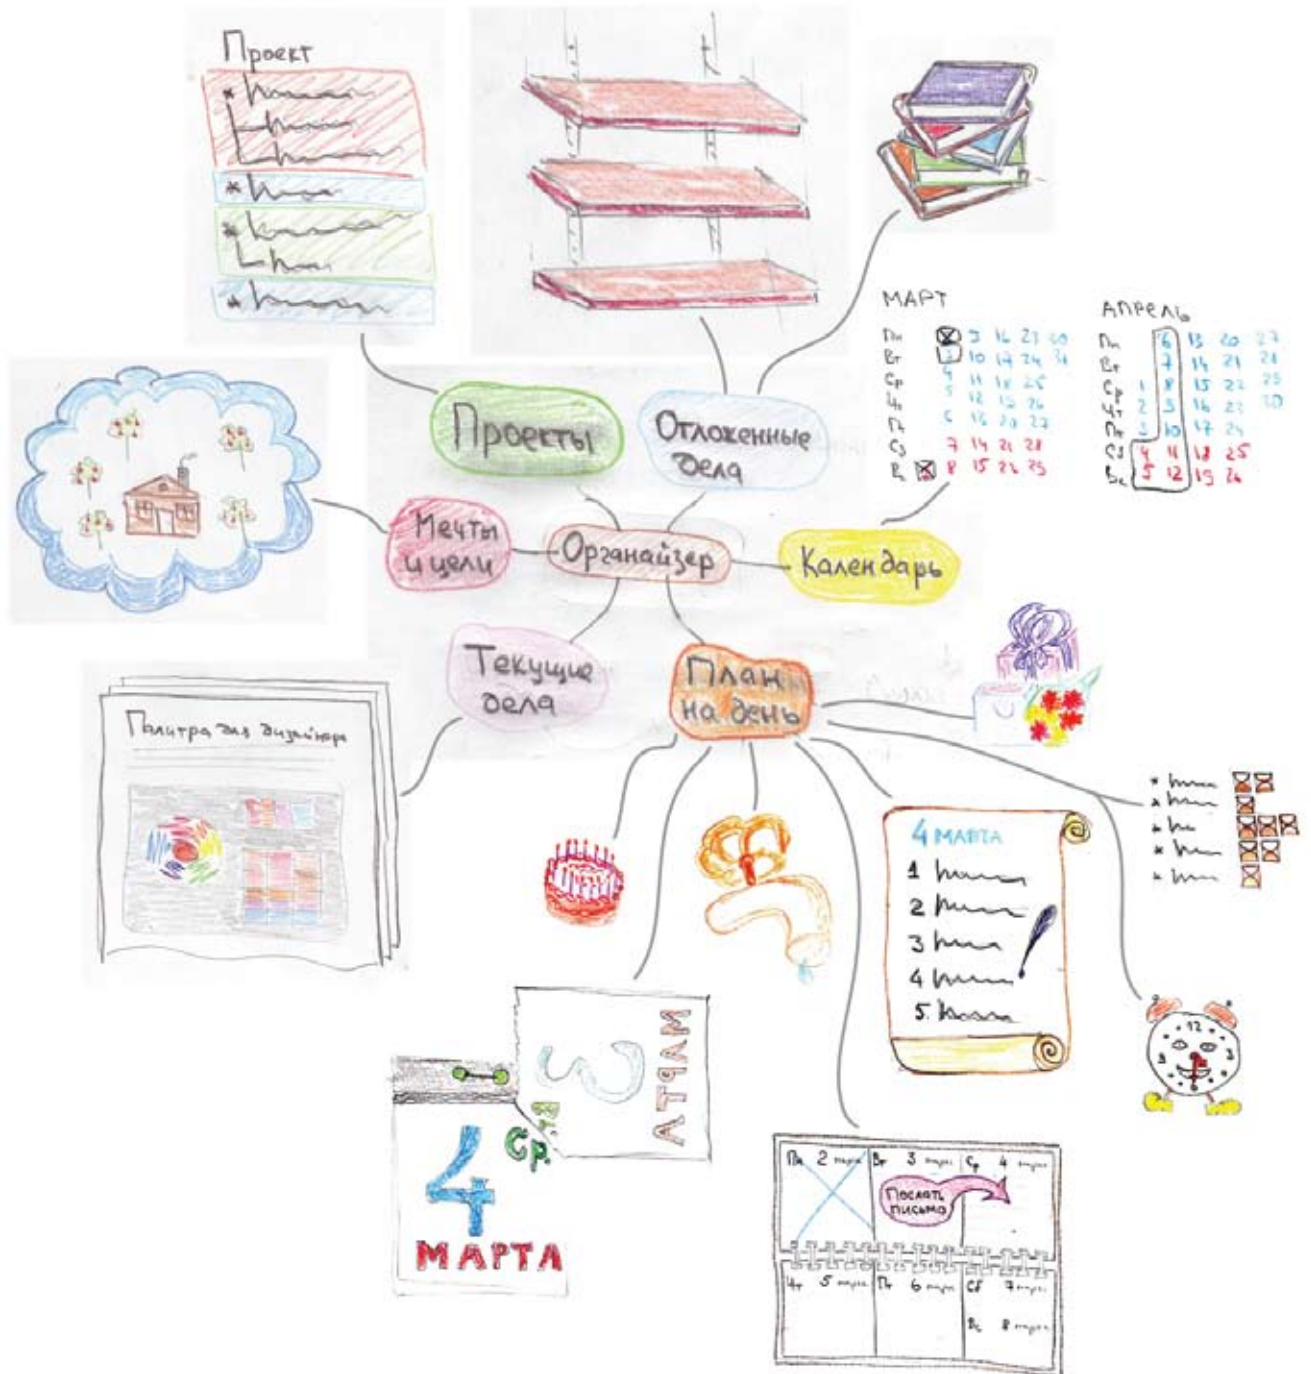 Проект
МАРТ
Пн 9 16 23 30
Вт 3 10 17 24 31
Ср 4 11 18 25
Чт 5 12 19 26
Пт 6 13 20 27
Сб 7 14 21 28
Вс 8 15 22 29
АПРЕЛЬ
Пн 6 13 20 27
Вт 7 14 21 28
Ср 1 8 15 22 29
Чт 2 9 16 23 30
Пт 3 10 17 24
Сб 4 11 18 25
Вс 5 12 19 26
Проекты
Отложенные
дела
Мечты
и цели
Органайзер
Календарь
Текущие
дела
План
на день
Палитра для дизайнера
4 МАРТА
1
2
3
4
5.
12
3
9
3
МАРТА
Вт.
Ср.
4
МАРТА
Пн 2 марта Вт 3 марта Ср 4 марта
Послать
письмо
Чт 5 марта Пт 6 марта Сб 7 марта
Вс 8 марта